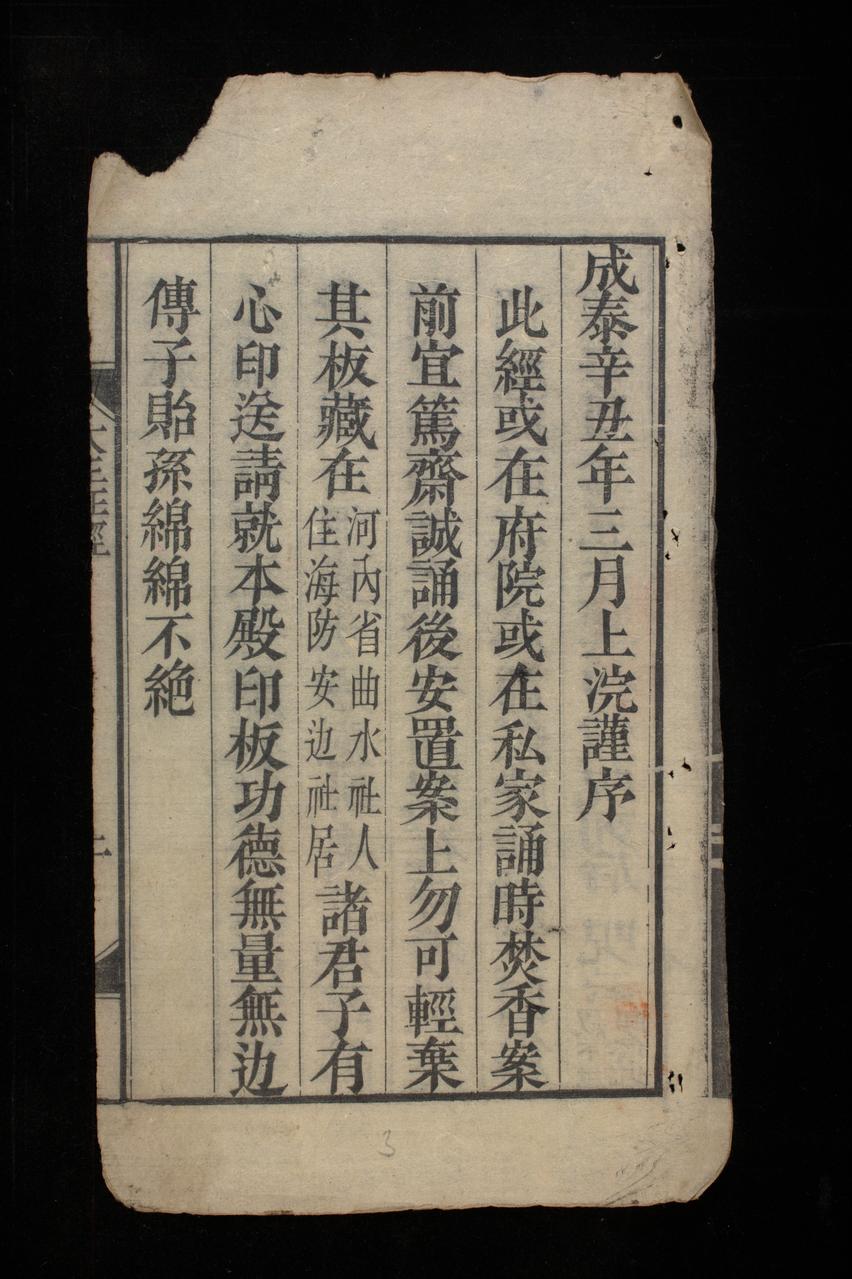 成泰辛丑年三月上浣謹序
此經或在府院或在私家誦時焚香案
前宜篤齋誠誦後安置案上勿可輕棄
其板藏在河內省曲水社人住海防安边社居諸君子有
心印送請就本殿印板功德無量無边
傳子貽孫綿綿不絶
大王經
3